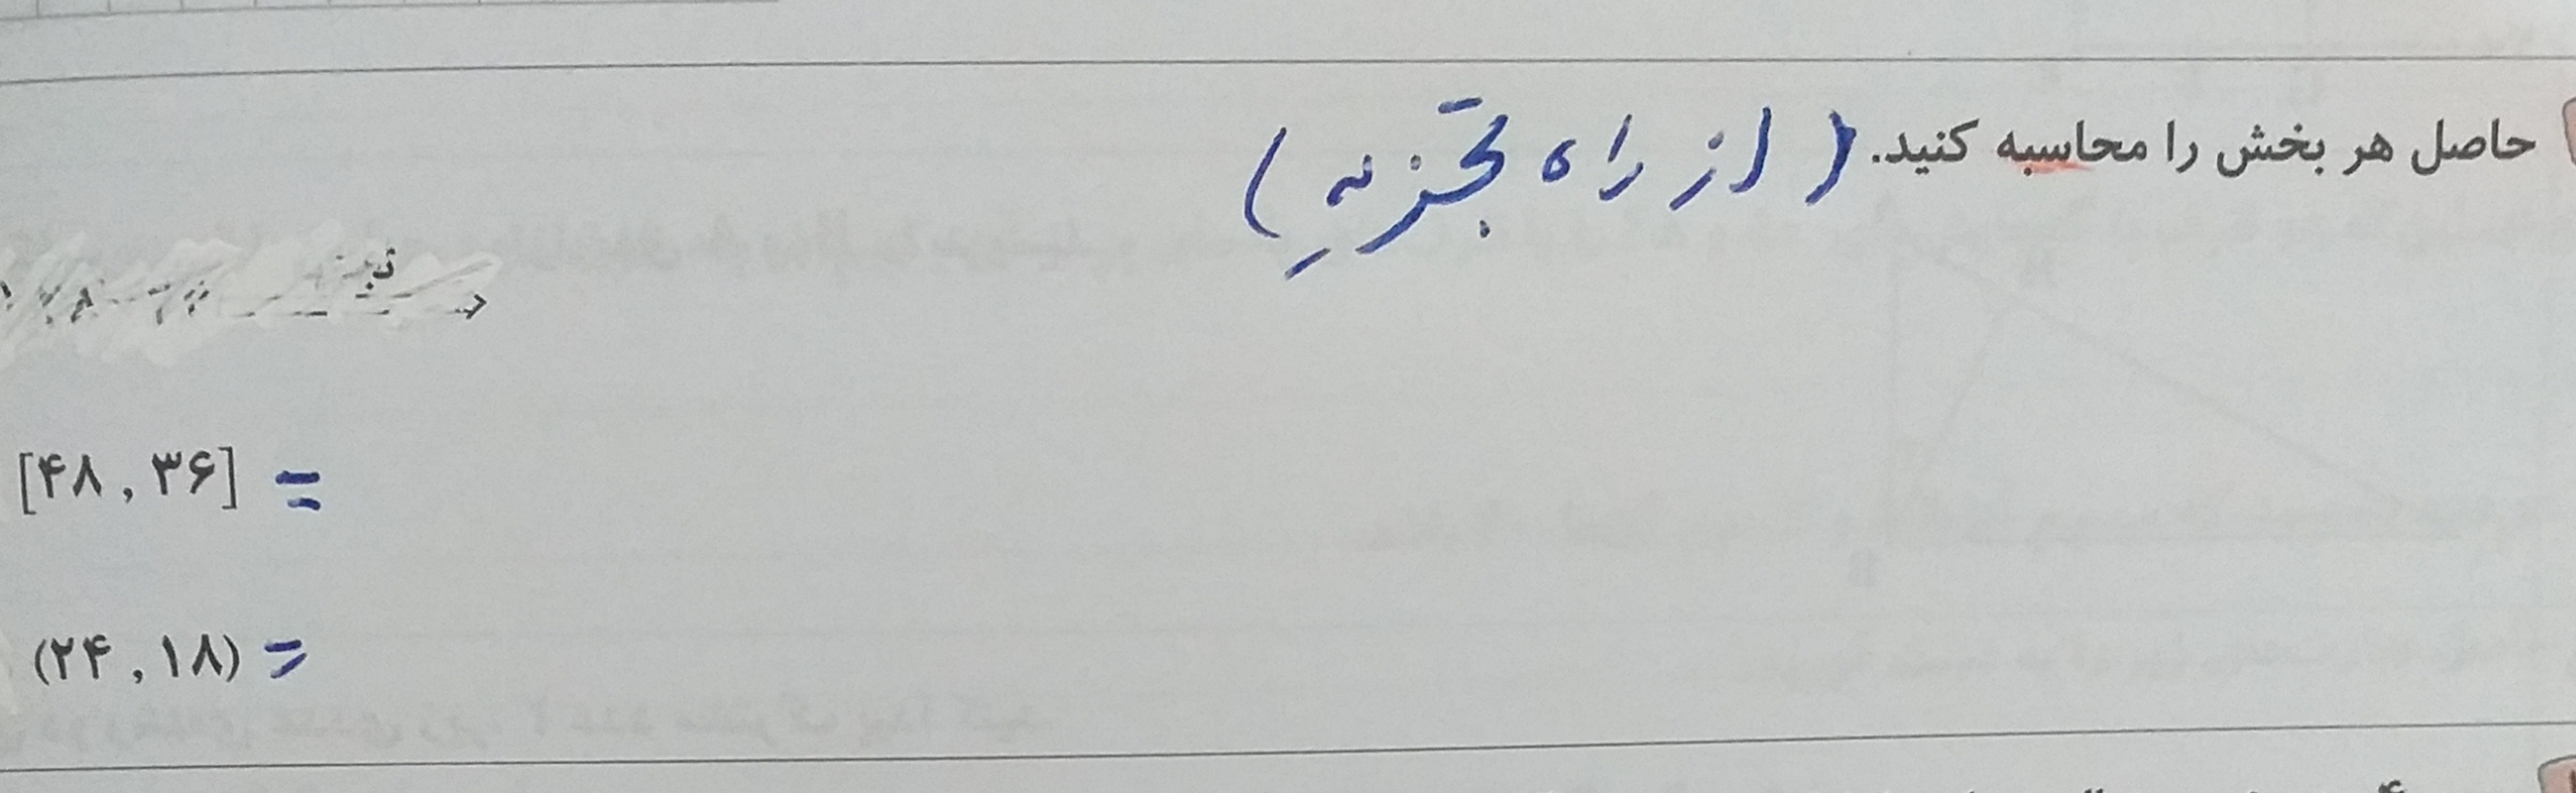 حاصل هر بخش را محاسبه کنید. (از راه تجزیه)
[۴۸ , ۳۶] =
(۲۴ , ۱۸) =